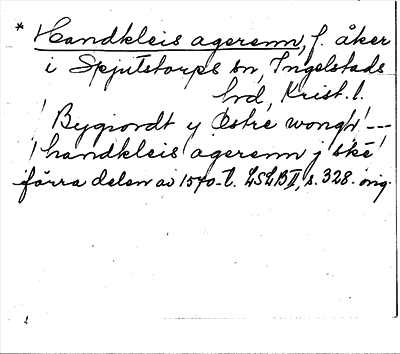 * Handkleis agerenn, f. åker
i Spjutstorps sn, Ingelstads
hd, Krist. l.
! Bygiordt y Østre wongh! ---
! handkleis agerenn j ské!
förra delen av 1540-t. LSLB II, s. 328. orig.